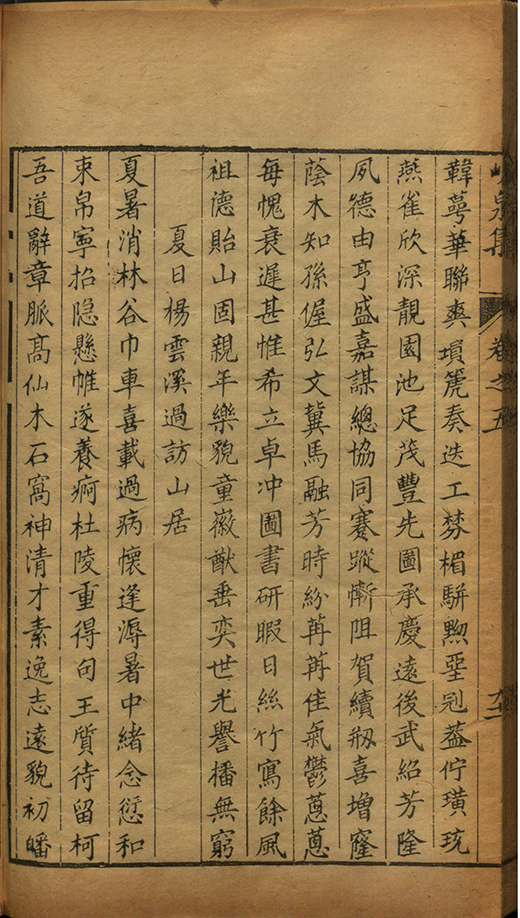 泉集 卷之五
韡萼華聯爽塤箎奏迭工棼楣駢黝堊冠葢佇璜珫
燕雀欣深靚園池足茂豐先圖承慶遠後武紹芳隆
夙德由亨盛嘉謀總協同蹇蹤慚阻賀續剏喜增窿
蔭木知孫偓弘文冀馬融芳時紛苒苒佳氣鬱蔥蔥
每愧衰遲甚惟希立卓冲圖書研暇日絲竹寫餘風
祖德貽山固親年樂貌童徽猷垂奕世光譽播無窮
夏日楊雲溪過訪山居
夏暑消林谷巾車喜載過病懷逢溽暑中緒念愆和
束帛寧招隐懸帷遂養痾杜陵重得句王質待留柯
吾道辭章脈髙仙木石窩神清才素逸志遠貌初皤